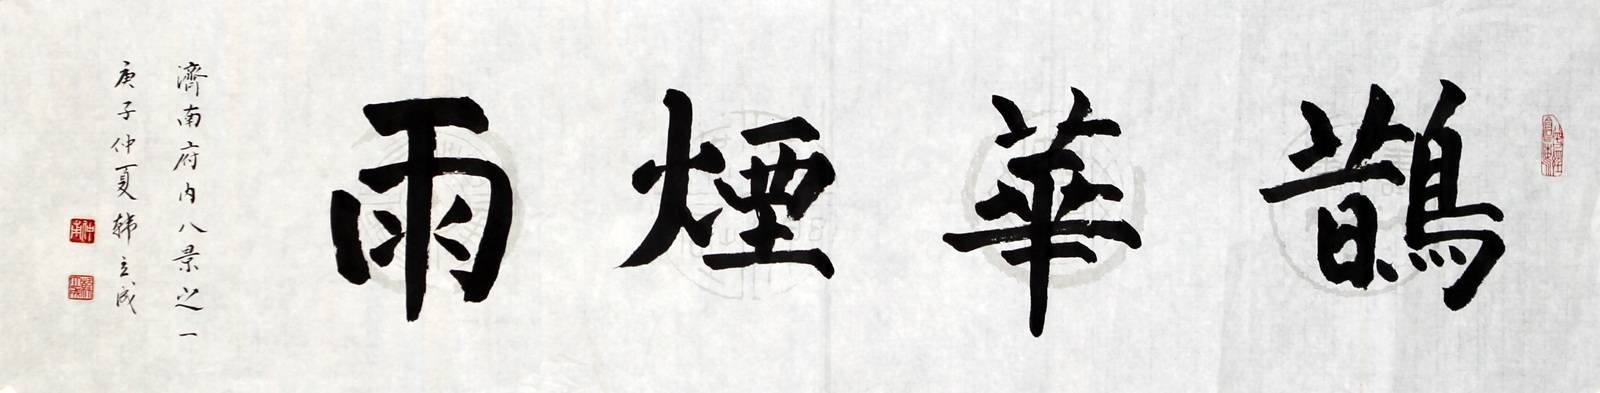 鵲華煙雨
濟南府内八景之一
庚子仲夏韩立成